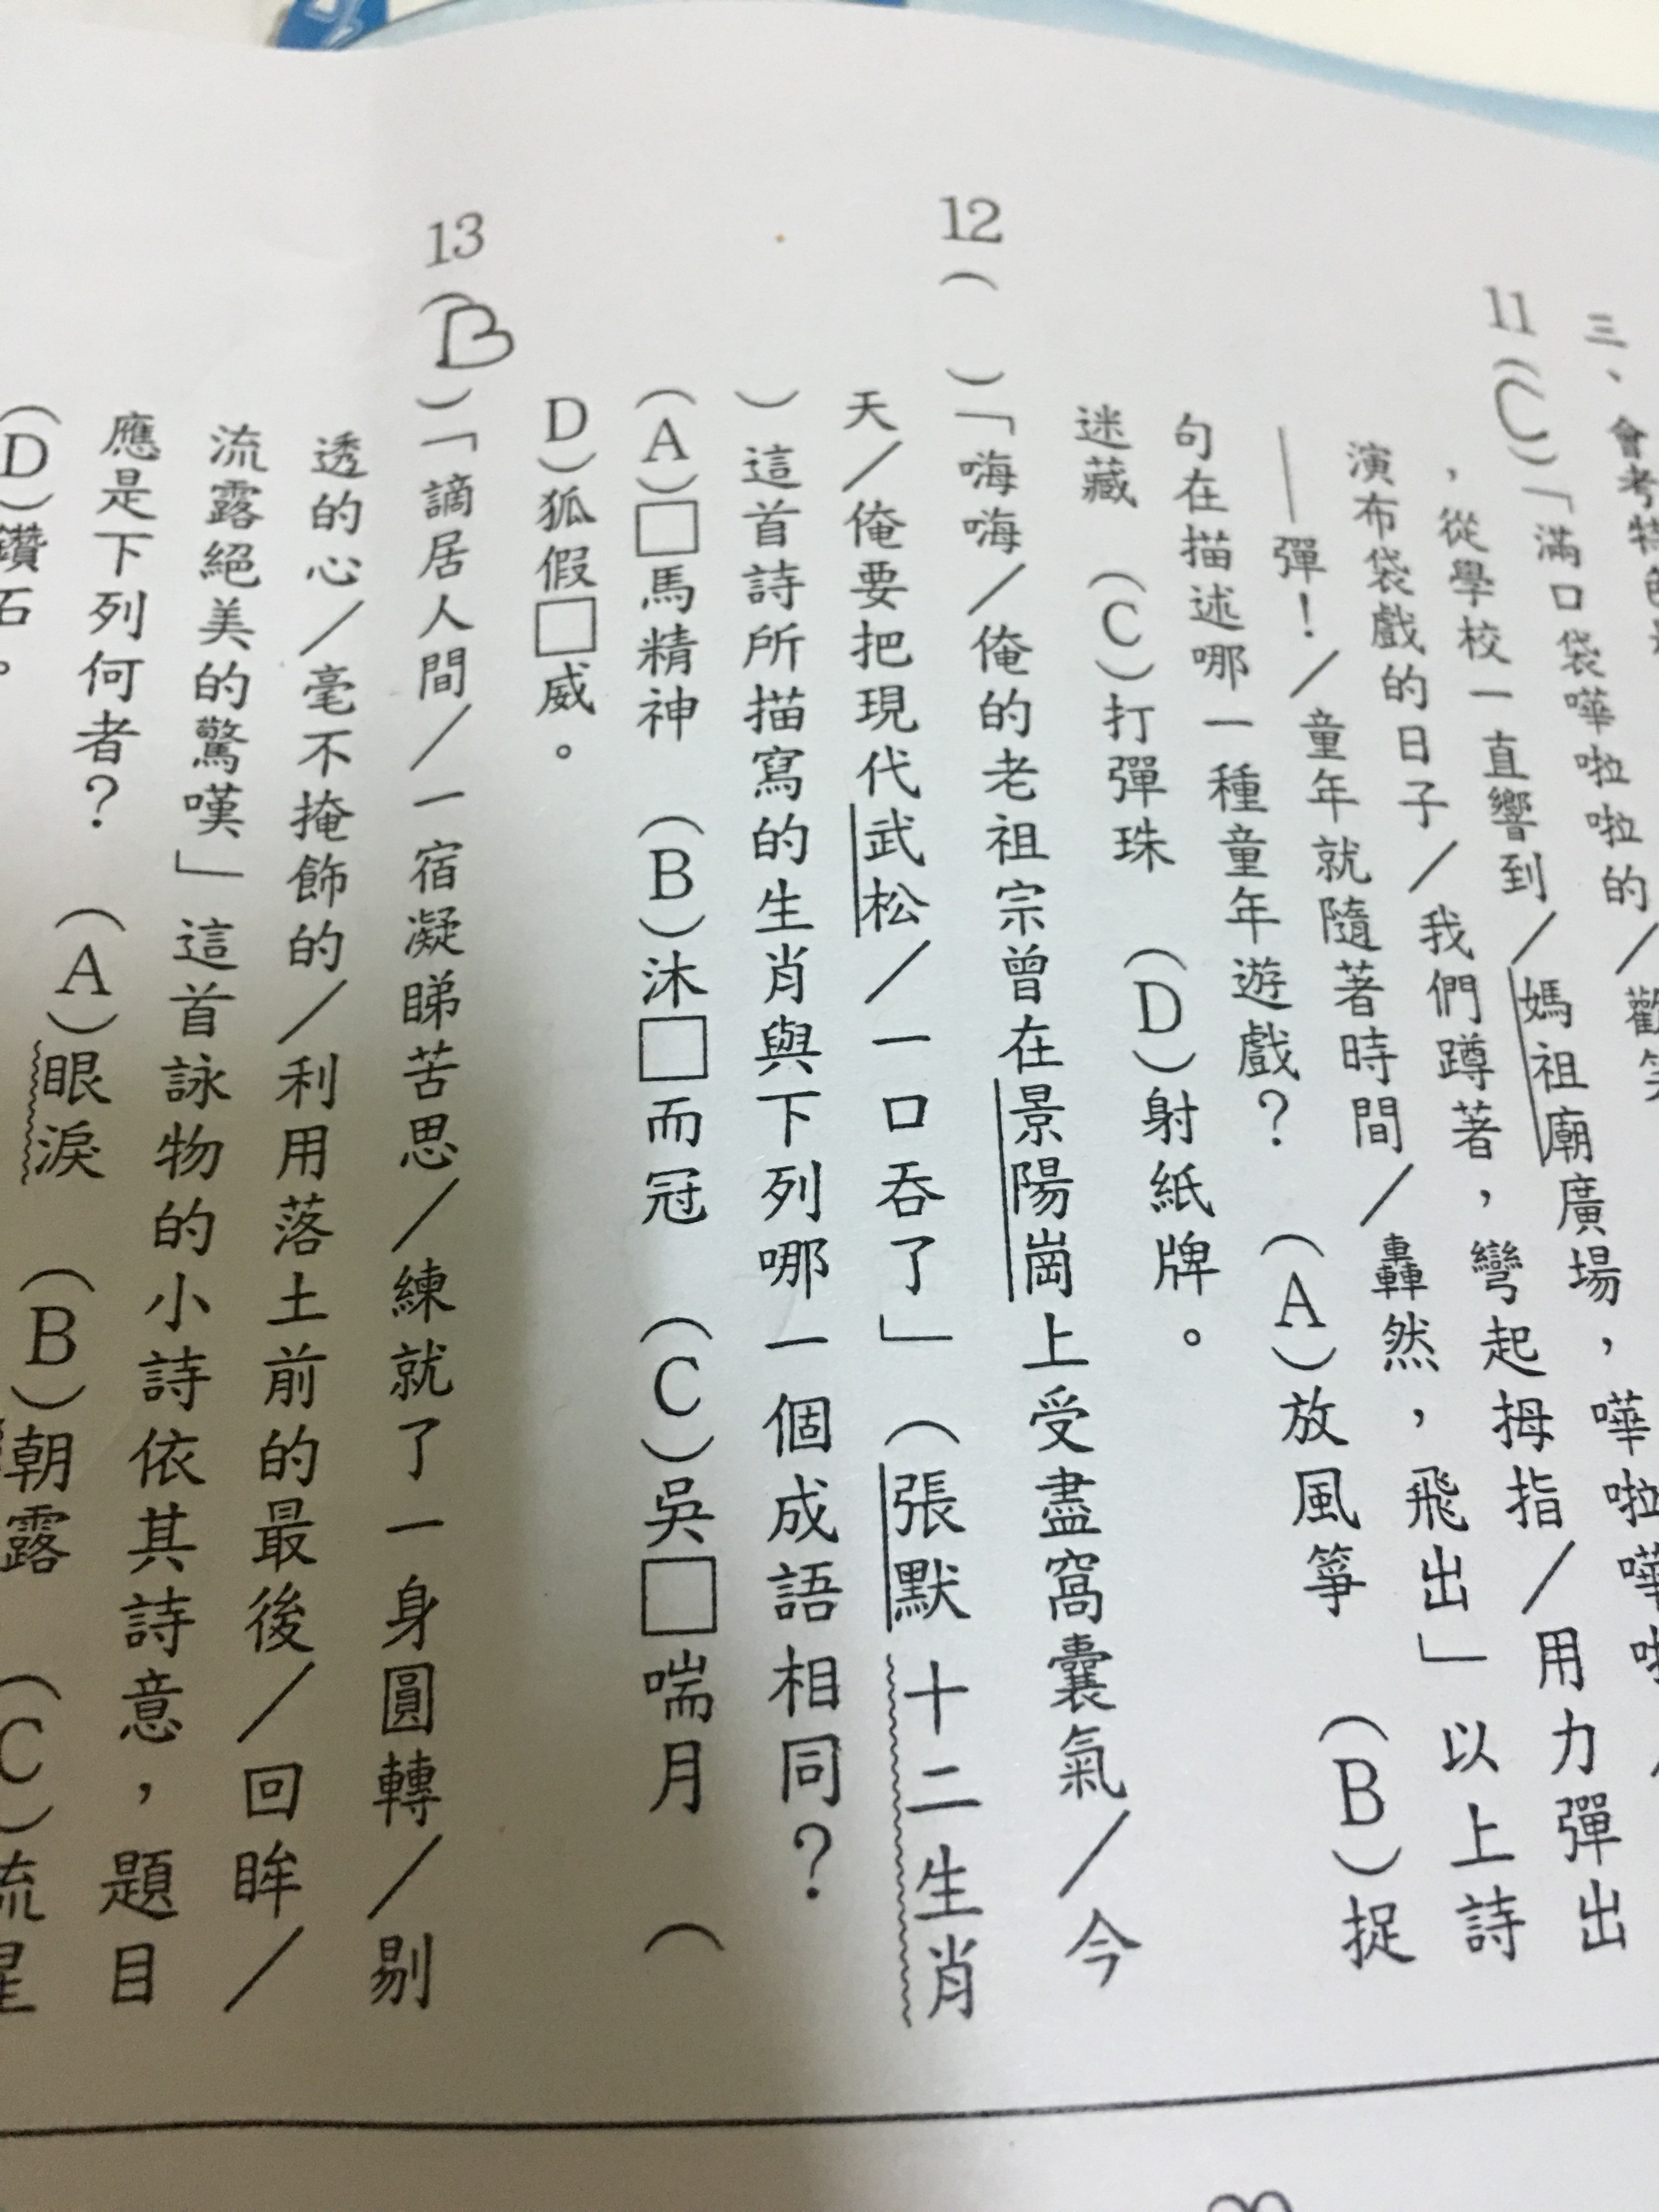 三、會考特色
11(C)「滿口袋嘩啦啦的/歡笑
,從學校一直響到/媽祖廟廣場,嘩啦嘩
演布袋戲的日子/我們蹲著,彎起拇指/用力彈出
──彈!/童年就隨著時間/轟然,飛出」以上詩
句在描述哪一種童年遊戲? (A)放風箏 (B)捉
迷藏 (C)打彈珠 (D)射紙牌。
12( )「嗨嗨/俺的老祖宗曾在景陽崗上受盡窩囊氣/今
天/俺要把現代武松/一口吞了」(張默 十二生肖
)這首詩所描寫的生肖與下列哪一個成語相同?
(A)□馬精神 (B)沐□而冠 (C)吳□喘月 (
D)狐假□威。
13(B)「謫居人間/一宿凝睇苦思/練就了一身圓轉/剔
透的心/毫不掩飾的/利用落土前的最後/回眸/
流露絕美的驚嘆」這首詠物的小詩依其詩意,題目
應是下列何者? (A)眼淚 (B)朝露 (C)流星
(D)鑽石。